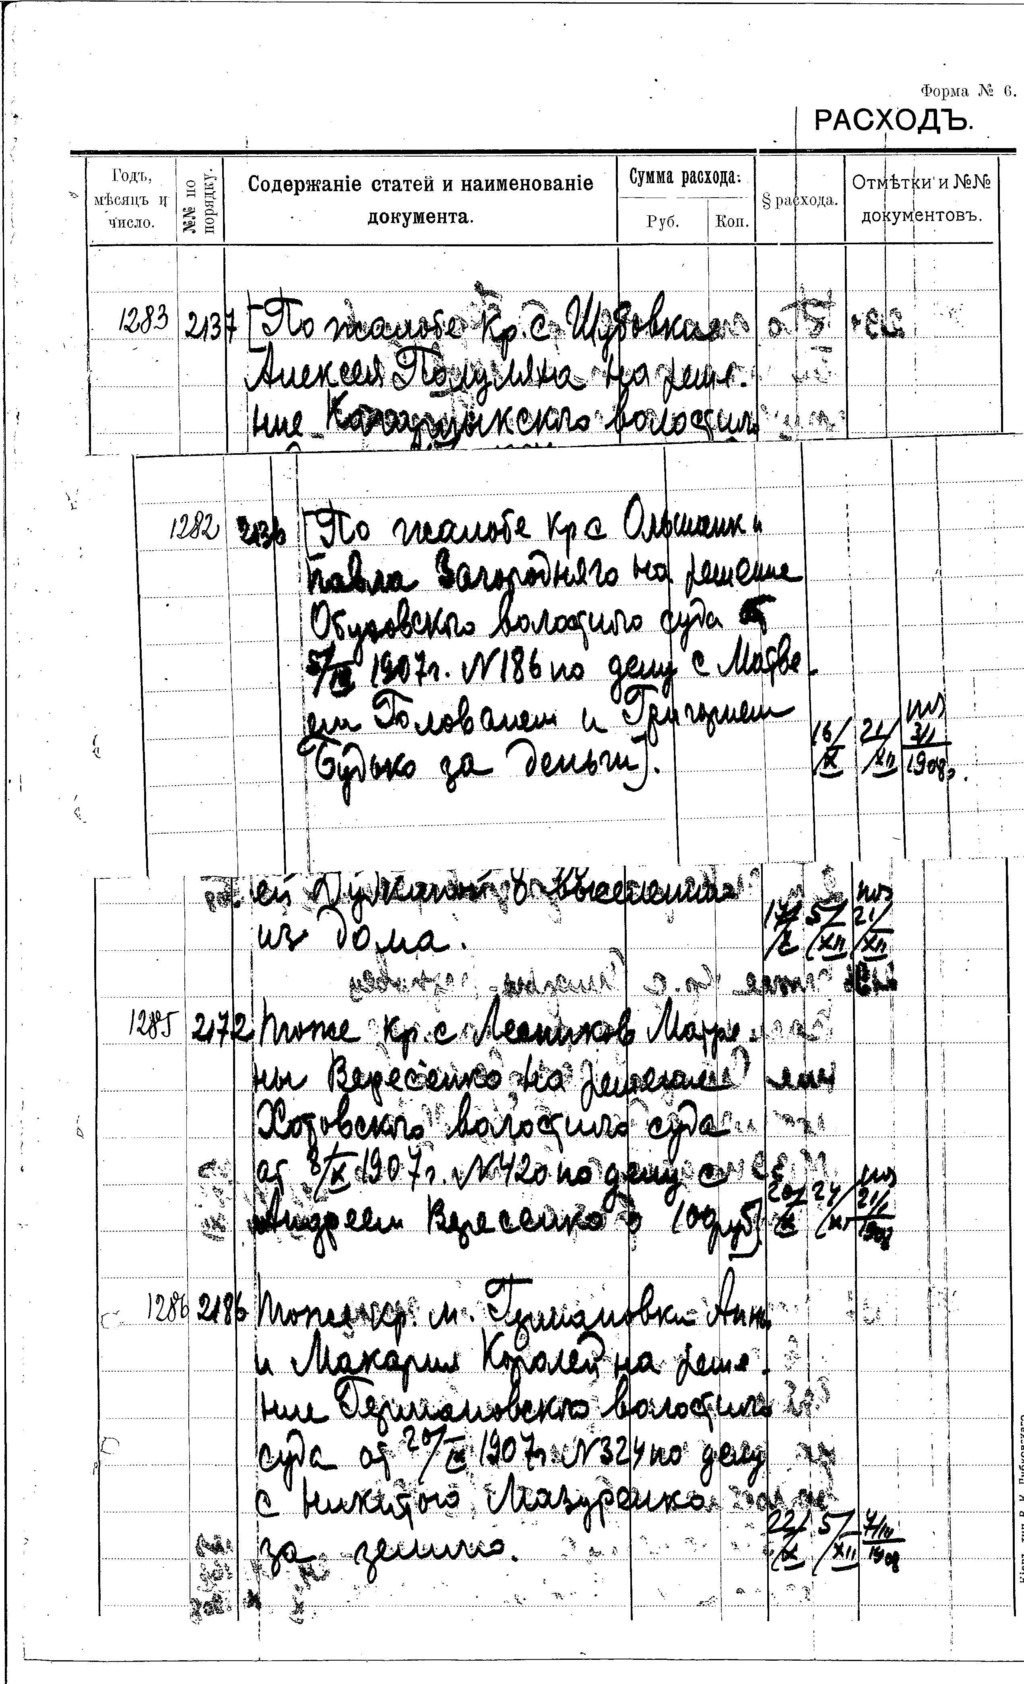 Форма № 6.
РАСХОДЪ.
Годъ, мѣсяцъ и число.
№№ по порядку.
Содержаніе статей и наименованіе документа.
Сумма расхода:
Руб. Коп.
§ расхода.
Отмѣтки и №№ документовъ.
1283 2137 [По жалобе кр. с. Шубовка
Алексея Полуляха на реше-
ние Кагарлыкского волостн.
1282 2136 [По жалобе кр с Ольшанки
Павла Загородняго на решение
Обуховского волостного суда от
5/IX 1907г. N186 по делу с Матве-
ем Голованем и Григорием
Будько за деньги].
16/X 21/XII 3/I 1908г.
о выселении
из дома.
17/X 5/XII 21/XII
1285 2172 тоже кр. с Лесников Матре-
ны Вересенко на решение
Хотовского волостного суда
от 8/X 1907г. N420 по делу с
Андреем Вересенко о 100руб]
20/X 21/I 1908
1286 2186 тоже кр. м. Германовки Анны
и Макария Королей на реше-
ние Германовского волостного
суда от 20/IX 1907г N324 по делу
с Никитою Мазуренко
за землю.
22/X 5/XII 7/III 1908